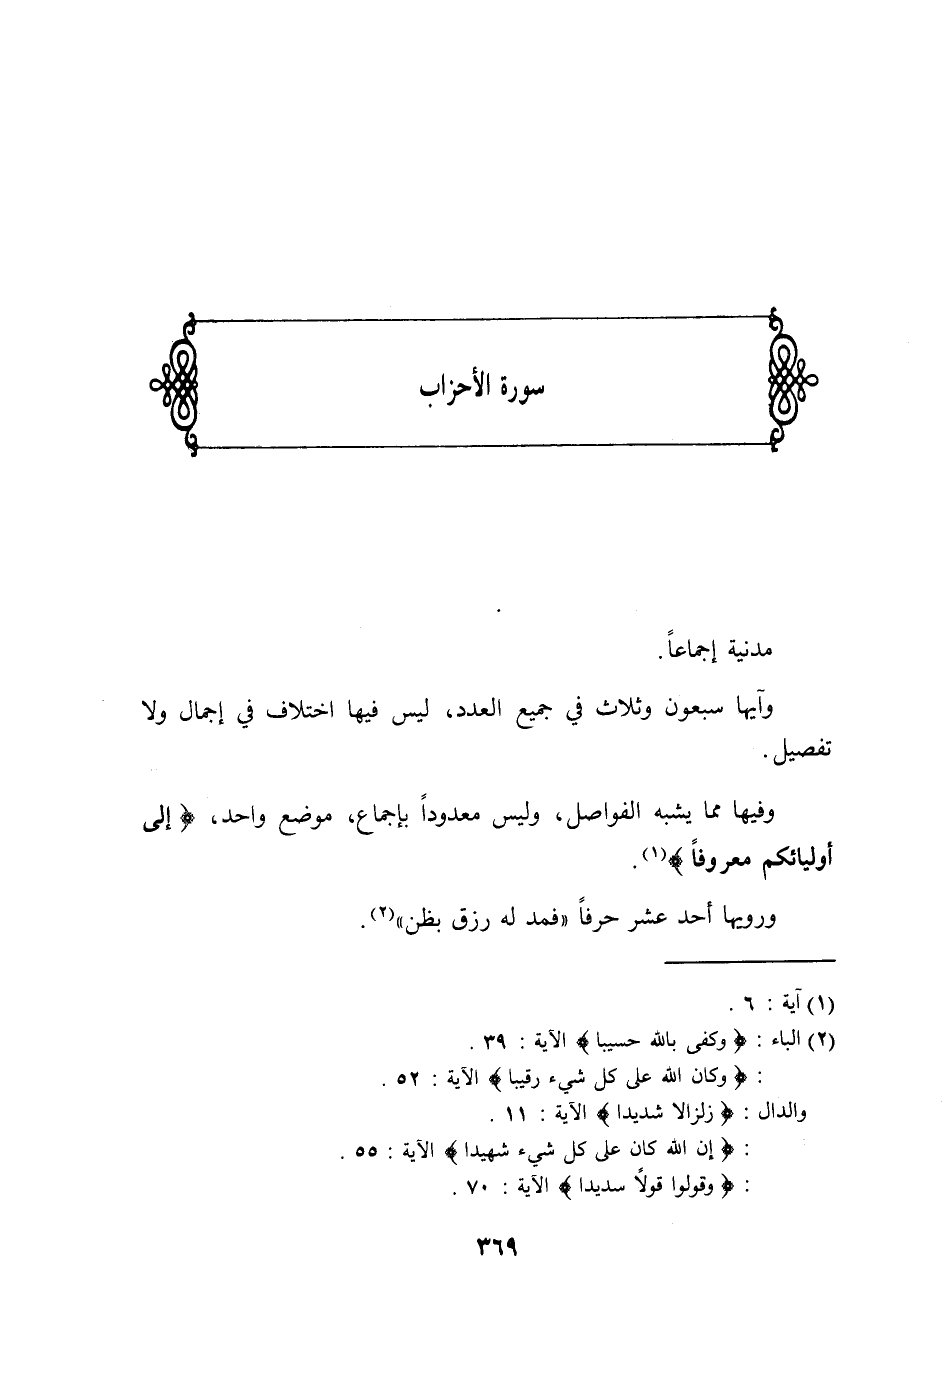 سورة الأحزاب
مدنية إجماعاً.
وآيها سبعون وثلاث في جميع العدد، ليس فيها اختلاف في إجمال ولا
تفصيل.
وفيها مما يشبه الفواصل، وليس معدوداً بإجماع، موضع واحد، ﴿ إلى
أوليائكم معروفاً ﴾(١).
ورويها أحد عشر حرفاً «فمد له رزق بظن»(٢).
(١) آية : ٦ .
(٢) الباء : ﴿ وكفى بالله حسيبا ﴾ الآية : ٣٩ .
: ﴿ وكان الله على كل شيء رقيبا ﴾ الآية : ٥٢ .
والدال : ﴿ زلزالا شديدا ﴾ الآية : ١١ .
: ﴿ إن الله كان على كل شيء شهيدا ﴾ الآية : ٥٥ .
: ﴿ وقولوا قولاً سديدا ﴾ الآية : ٧٠ .
٣٦٩